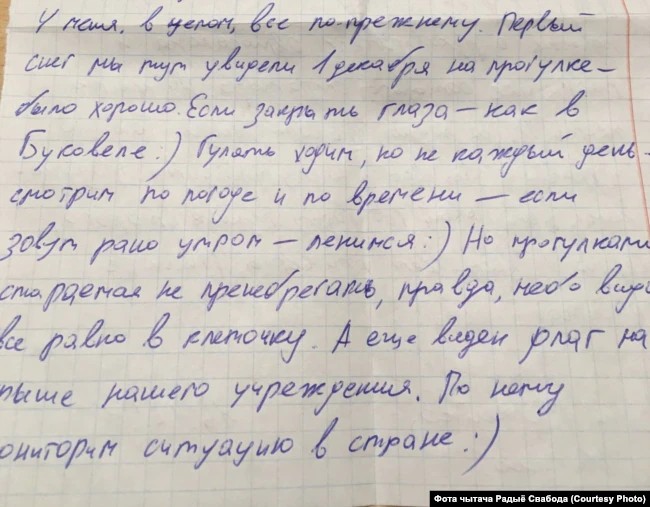 У меня, в целом, все по-прежнему. Первый
снег мы тут увидели 1 декабря на прогулке –
было хорошо. Если закрыть глаза – как в
Буковеле :) Гулять ходим, но не каждый день –
смотрим по погоде и по времени – если
зовут рано утром – ленимся :) Но прогулками
стараемся не пренебрегать, правда, небо вид
все равно в клеточку. А еще виден флаг на
рыше нашего учреждения. По нему
ониторим ситуацию в стране :)
Фота чытача Радыё Свабода (Courtesy Photo)